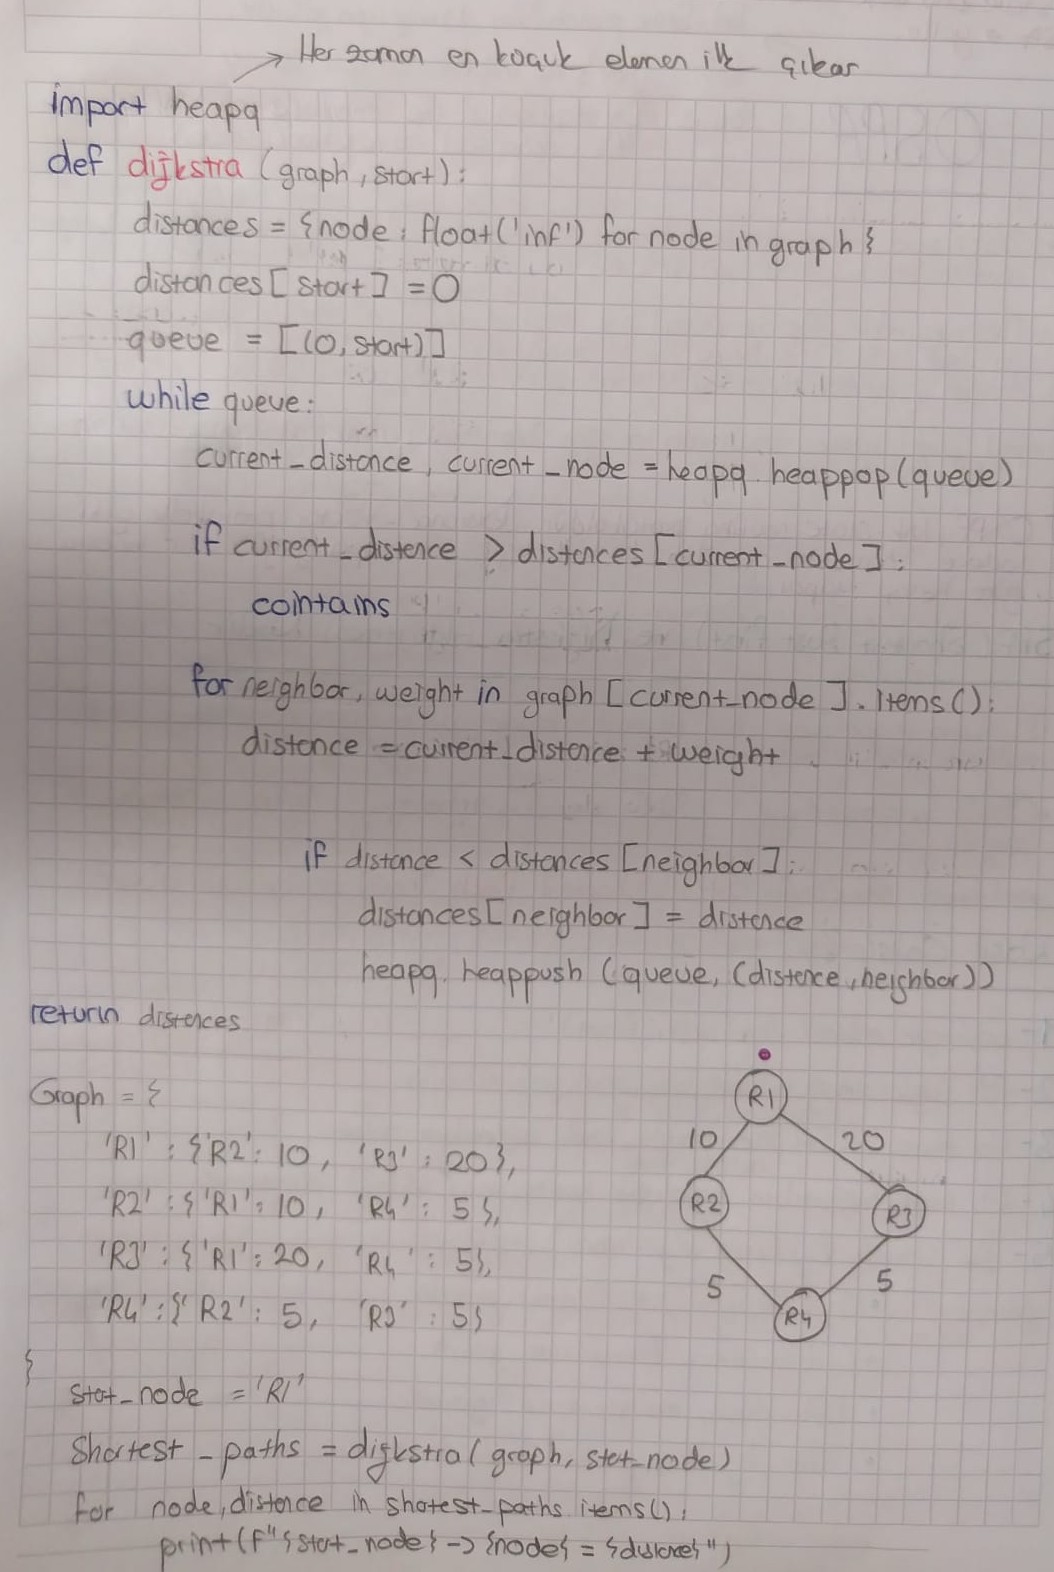 Her zaman en küçük eleman ilk çıkar
import heapq
def dijkstra (graph, start):
distances = {node: float('inf') for node in graph}
distances [start] = 0
queue = [(0, start)]
while queue:
current_distance, current_node = heapq.heappop(queue)
if current_distence > distances [current_node]:
cointains
for neighbor, weight in graph [current_node].Items():
distence = current_distence + weight
if distonce < distances [neighbor]:
distances [neighbor] = distence
heapq.heappush (queue, (distence, neighbor))
return distences
Graph = {
'R1' : {'R2': 10, 'R3' : 20},
'R2' : {'R1': 10, 'R4': 5},
'R3' : {'R1': 20, 'R4' : 5},
'R4' : {'R2': 5, 'R3' : 5}
}
R1
10 20
R2 R3
5 5
R4
stat_node = 'R1'
Shortest_paths = dijkstra (graph, stat_node)
for node, distence in shotest_paths items():
print (f"{stat_node} -> {node} = {distance}")